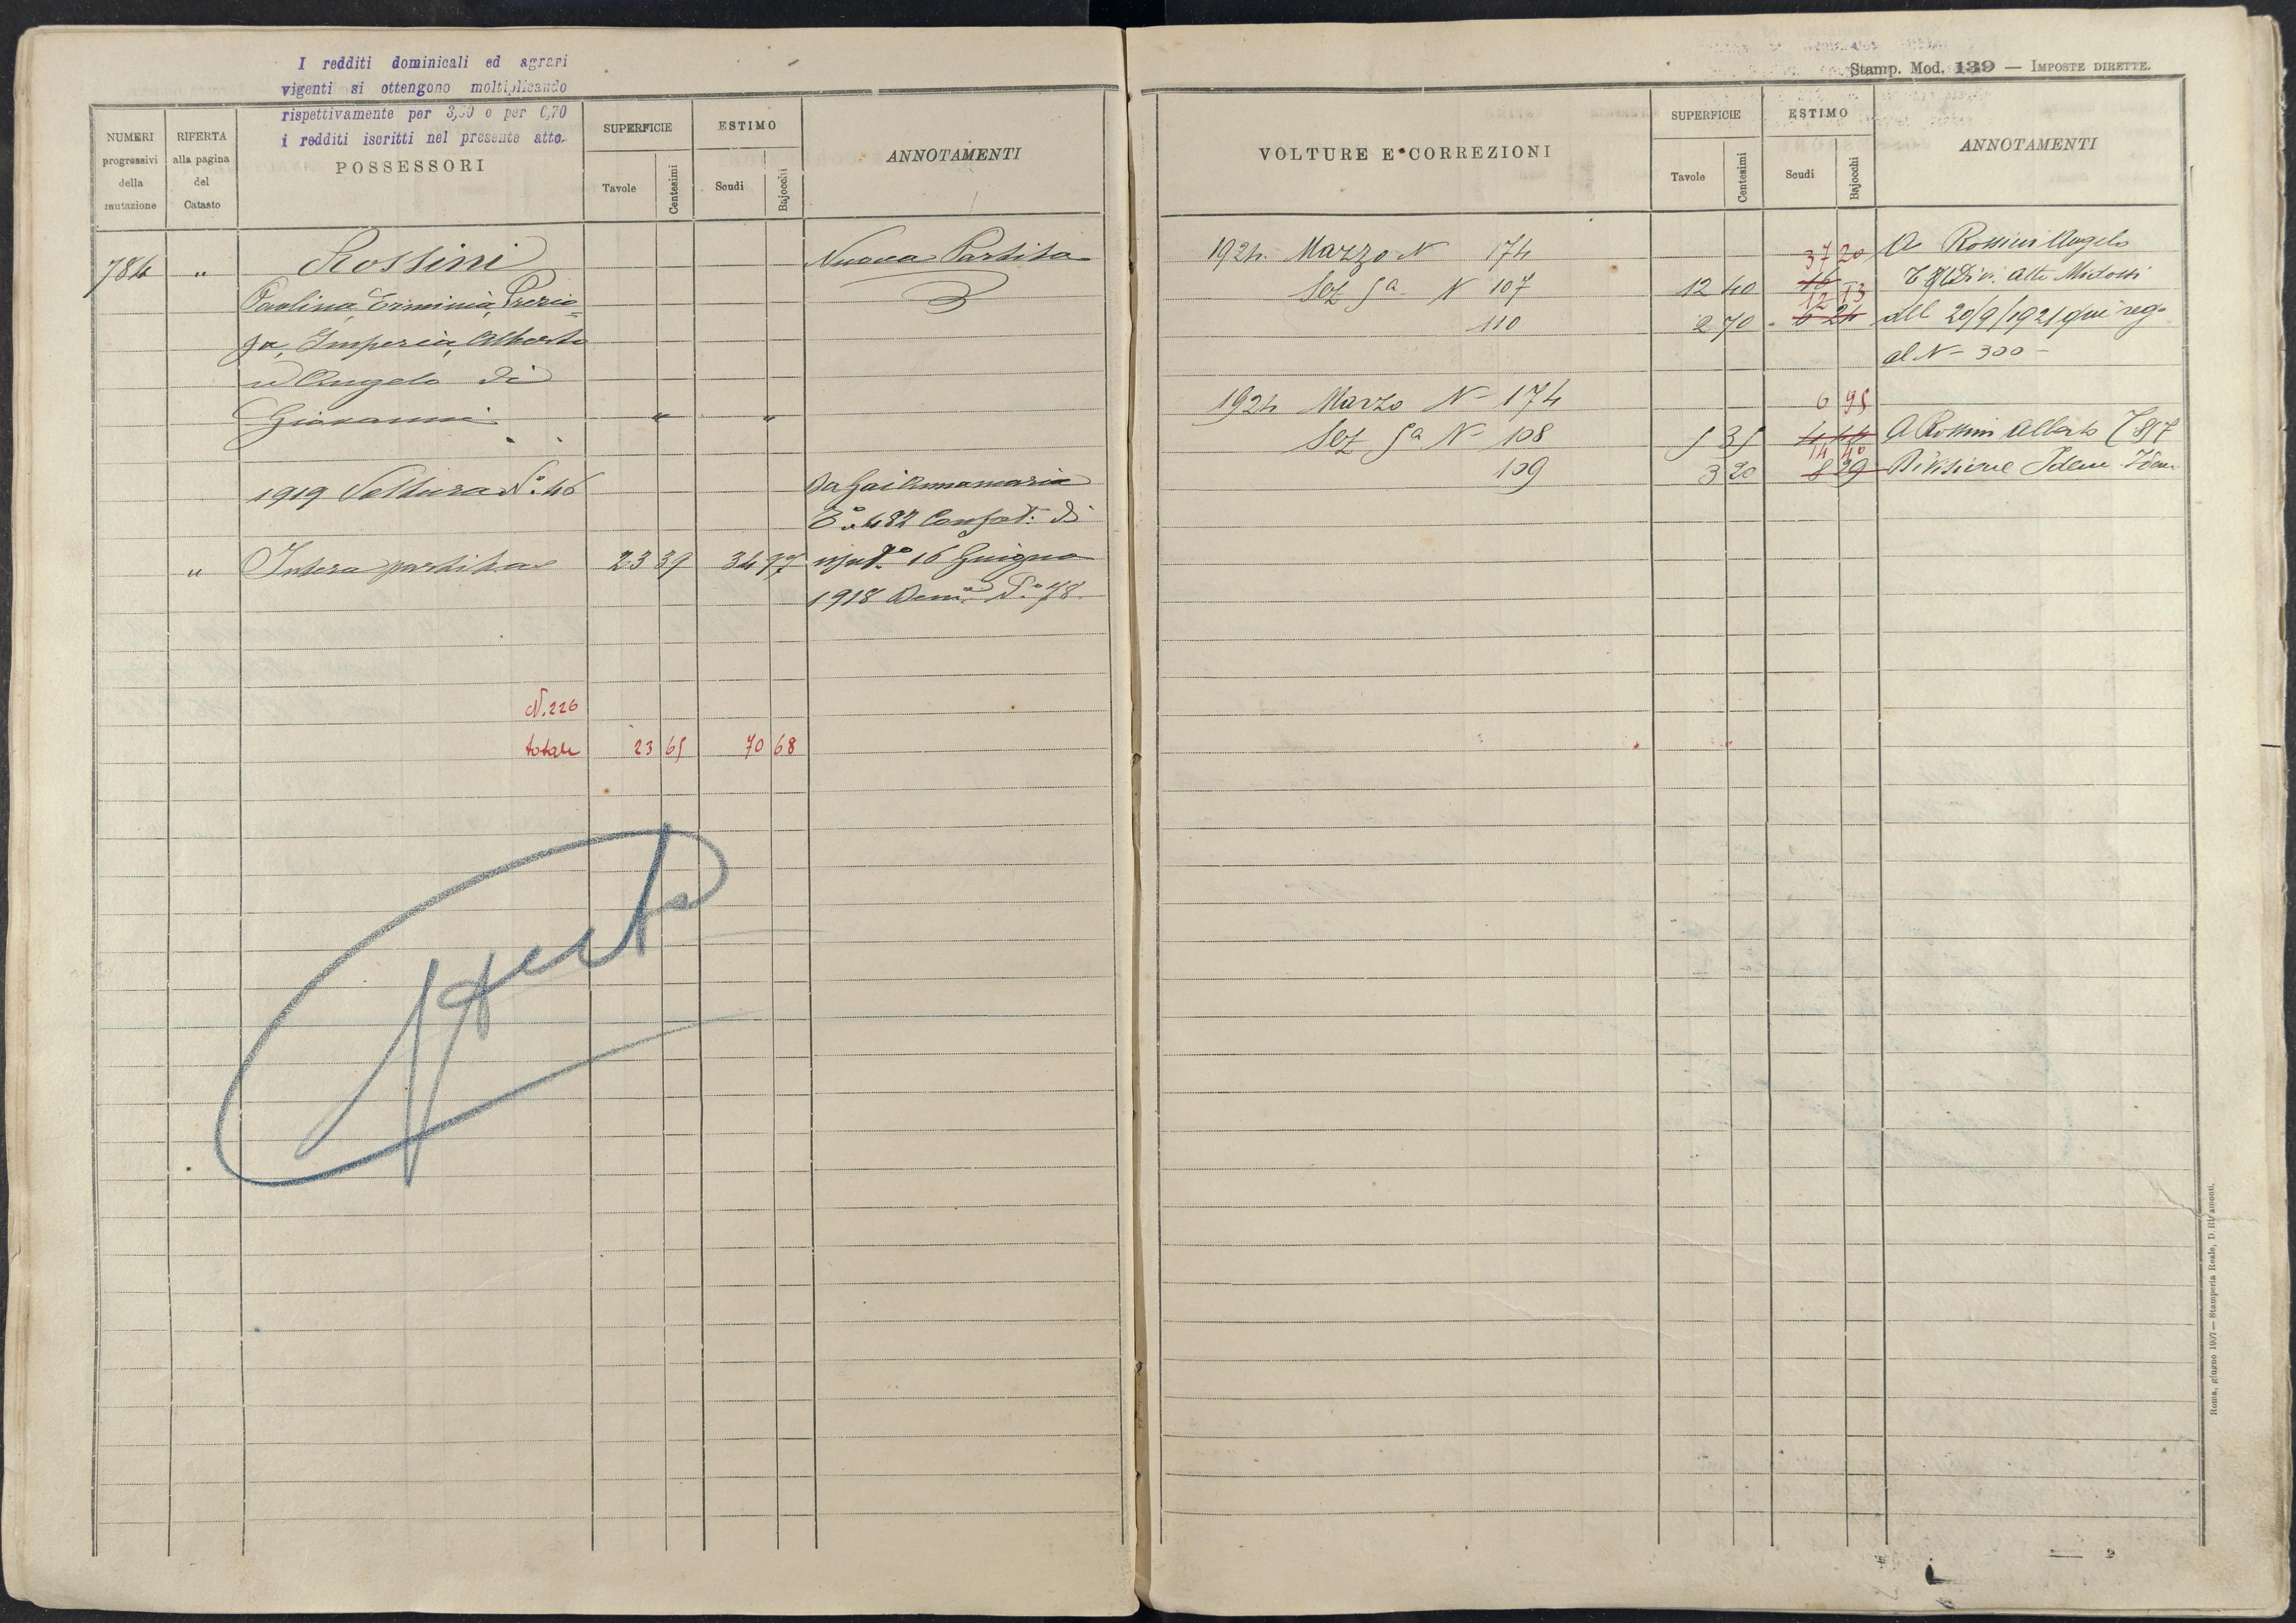 I redditi dominicali ed agrari
vigenti si ottengono moltiplicando
rispettivamente per 3,50 e per 0,70
i redditi iscritti nel presente atto.
NUMERI progressivi della mutazione
RIFERTA alla pagina del Catasto
POSSESSORI
SUPERFICIE
Tavole
Centesimi
ESTIMO
Scudi
Bajocchi
ANNOTAMENTI
784 " Rossini Nuova Partita
Paolina, Erminia, Prezio=
sa, Imperia, Alberto
ed Angelo di
Giovanni " "
1919 Voltura N.° 46 Da Gai Annamaria
482 di
" Intera partita 23 39 34 97 16 Giugno
1918 N.° 78
N. 226
totale 23 65 70 68
Aperta
Stamp. Mod. 139 — IMPOSTE DIRETTE.
VOLTURE E CORREZIONI
SUPERFICIE
Tavole
Centesimi
ESTIMO
Scudi
Bajocchi
ANNOTAMENTI
1924 Marzo N 174 37 20 A Rossini Angelo
Sez 5a N 107 12 40 16 Div. Atto Midossi
12 13
110 2 70 6 24 del 20/9/1921 qui reg.
al N- 300 -
1924 Marzo N- 174 6 95
Sez 5a N- 108 5 35 4 44 A Rossini Alberto
14 40
109 3 20 8 29 Divisione Idem Idem
Roma, giugno 1907 — Stamperia Reale, D. Ripamonti.